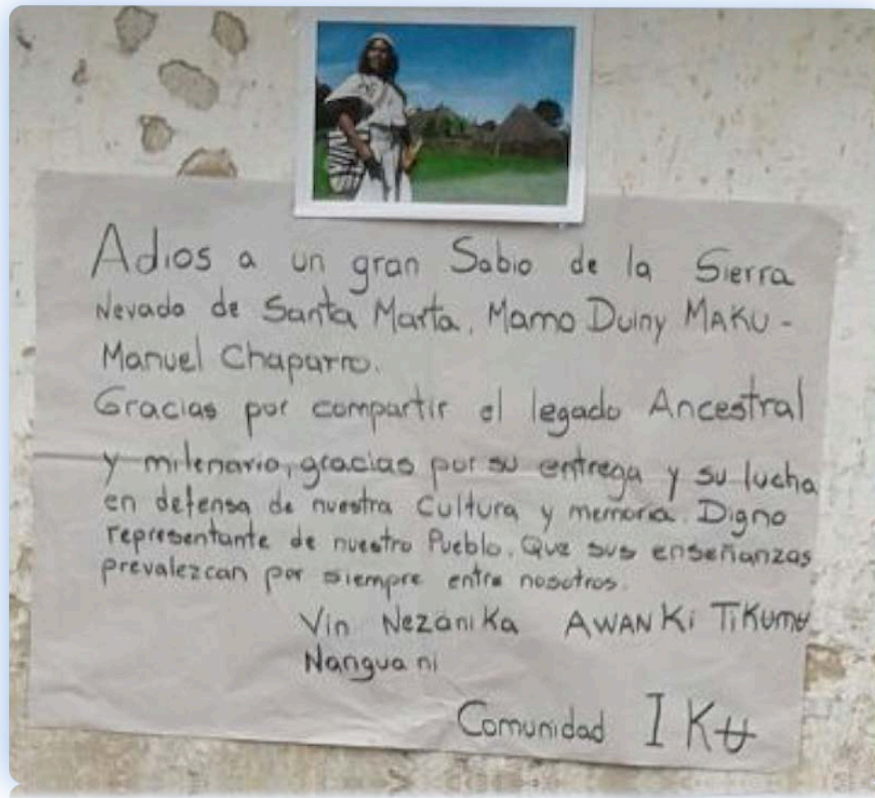 Adios a un gran Sabio de la Sierra
Nevada de Santa Marta, Mamo Duiny MAKU -
Manuel Chaparro.
Gracias por compartir el legado Ancestral
y milenario, gracias por su entrega y su lucha
en defensa de nuestra Cultura y memoria. Digno
representante de nuestro Pueblo. Que sus enseñanzas
prevalezcan por siempre entre nosotros.
Vin Nezanika AWANKi TiKumʉ
Nanguani
Comunidad IKʉ